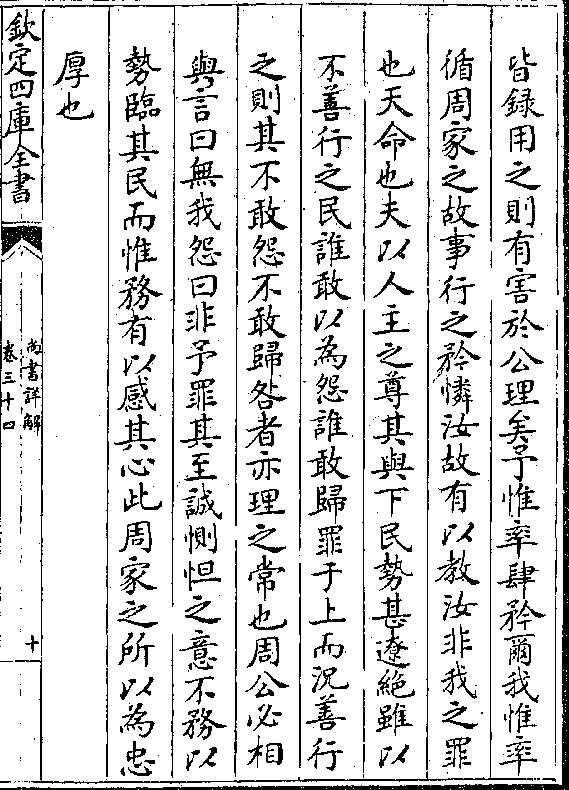 皆録用之則有害於公理矣予惟率肆矜爾我惟率
循周家之故事行之矜憐汝故有以教汝非我之罪
也天命也夫以人主之尊其與下民勢甚遼絶雖以
不善行之民誰敢以為怨誰敢歸罪于上而況善行
之則其不敢怨不敢歸咎者亦理之常也周公必相
與言曰無我怨曰非予罪其至誠惻怛之意不務以
勢臨其民而惟務有以感其心此周家之所以為忠
厚也
欽定四庫全書
尚書詳解
卷三十四
十